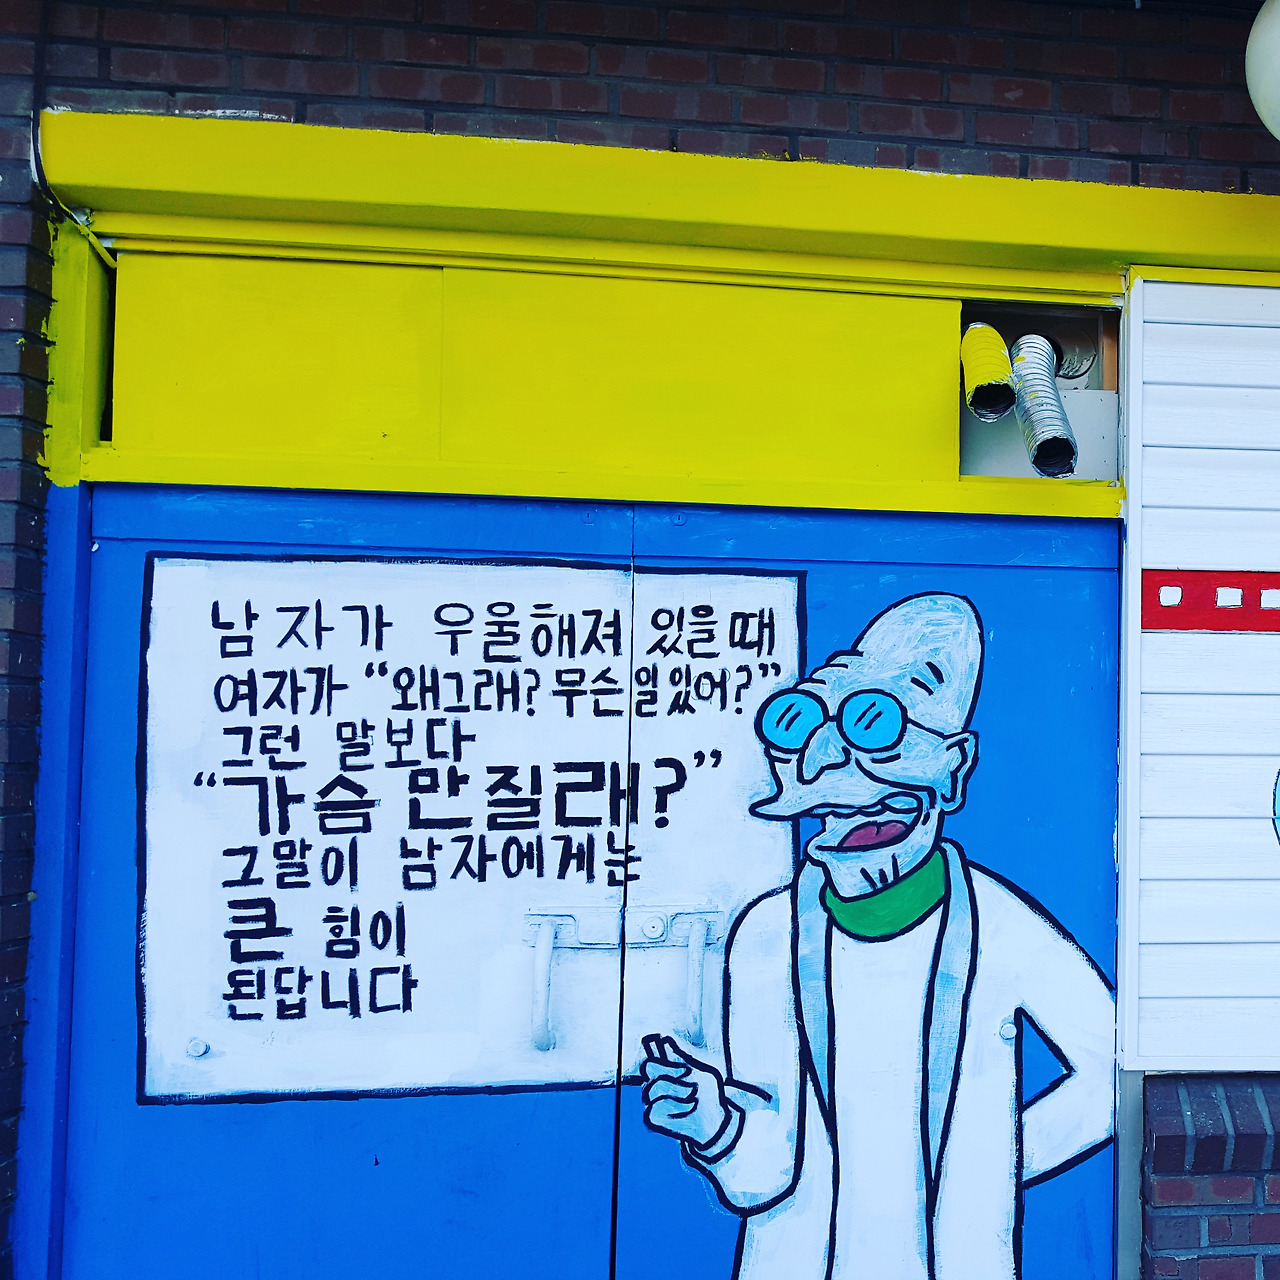 남자가 우울해져 있을때
여자가 “왜그래? 무슨일있어?”
그런 말보다
“가슴 만질래?”
그말이 남자에게는
큰 힘이
된답니다